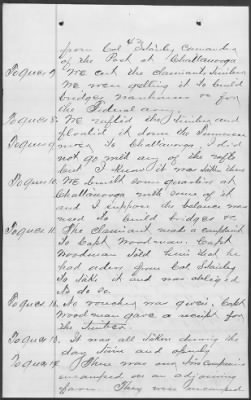 43
from Col Stanley Comanding
of the Post at Chattanooga
To ques 7. We cut the Claimants timber
We were getting it to build
bridges warehouses &c for
the Federal army.
To ques 8. We rafted the timber and
floated it down the Tennessee
To ques 9. river to Chattanooga. I did
not go with any of the rafts
but I know it was taken there
To ques 10. We build some quarters at
Chattanooga with some of it
and I suppose the balance was
used to build bridges &c
To ques 11. The claimant made a complaint
to Capt Woodman. Capt
Woodman told him that he
had orders from Col Stanley
to take it and was obliged
to do so.
To ques 12. No voucher was given. Capt
Woodman gave a receipt for
the timber.
To ques 13. It was all taken during the
day time and openly
To ques 14. There was our companies
encamped on an adjoining
farm. They were encamped